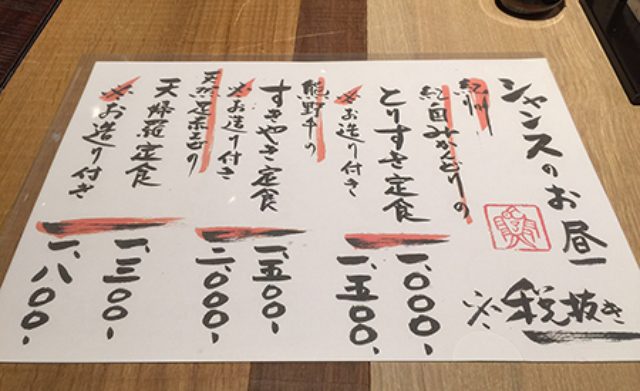 シャンスのお昼
※税抜き
紀州
紀国みかんどりの
とりすき定食
※お造り付き
熊野牛の
すきやき定食
※お造り付き
天然足赤えびの
天婦羅定食
※お造り付き
一、〇〇〇-
一、五〇〇-
一、五〇〇-
二、〇〇〇-
一、三〇〇-
一、八〇〇-